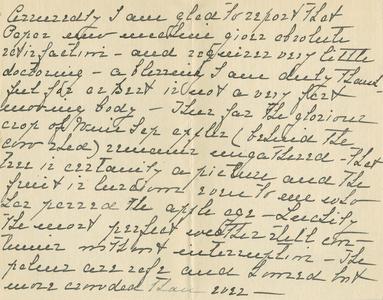 I am glad to report that
Papa new machine gives absolute
satisfaction - and requires very little
doctoring - a blessing I am duly thank-
ful for as Bert is not a very fast
moving body - Thus far the glorious
crop of Wine Sap apples (behind the
cow shed) remains ungathered - that
tree is certainly a picture and the
fruit is luscious even to one who
has passed the apple age - Luckily
the most perfect weather still con-
tinues without interruption - The
palms are safe and housed but
more crowded than ever -